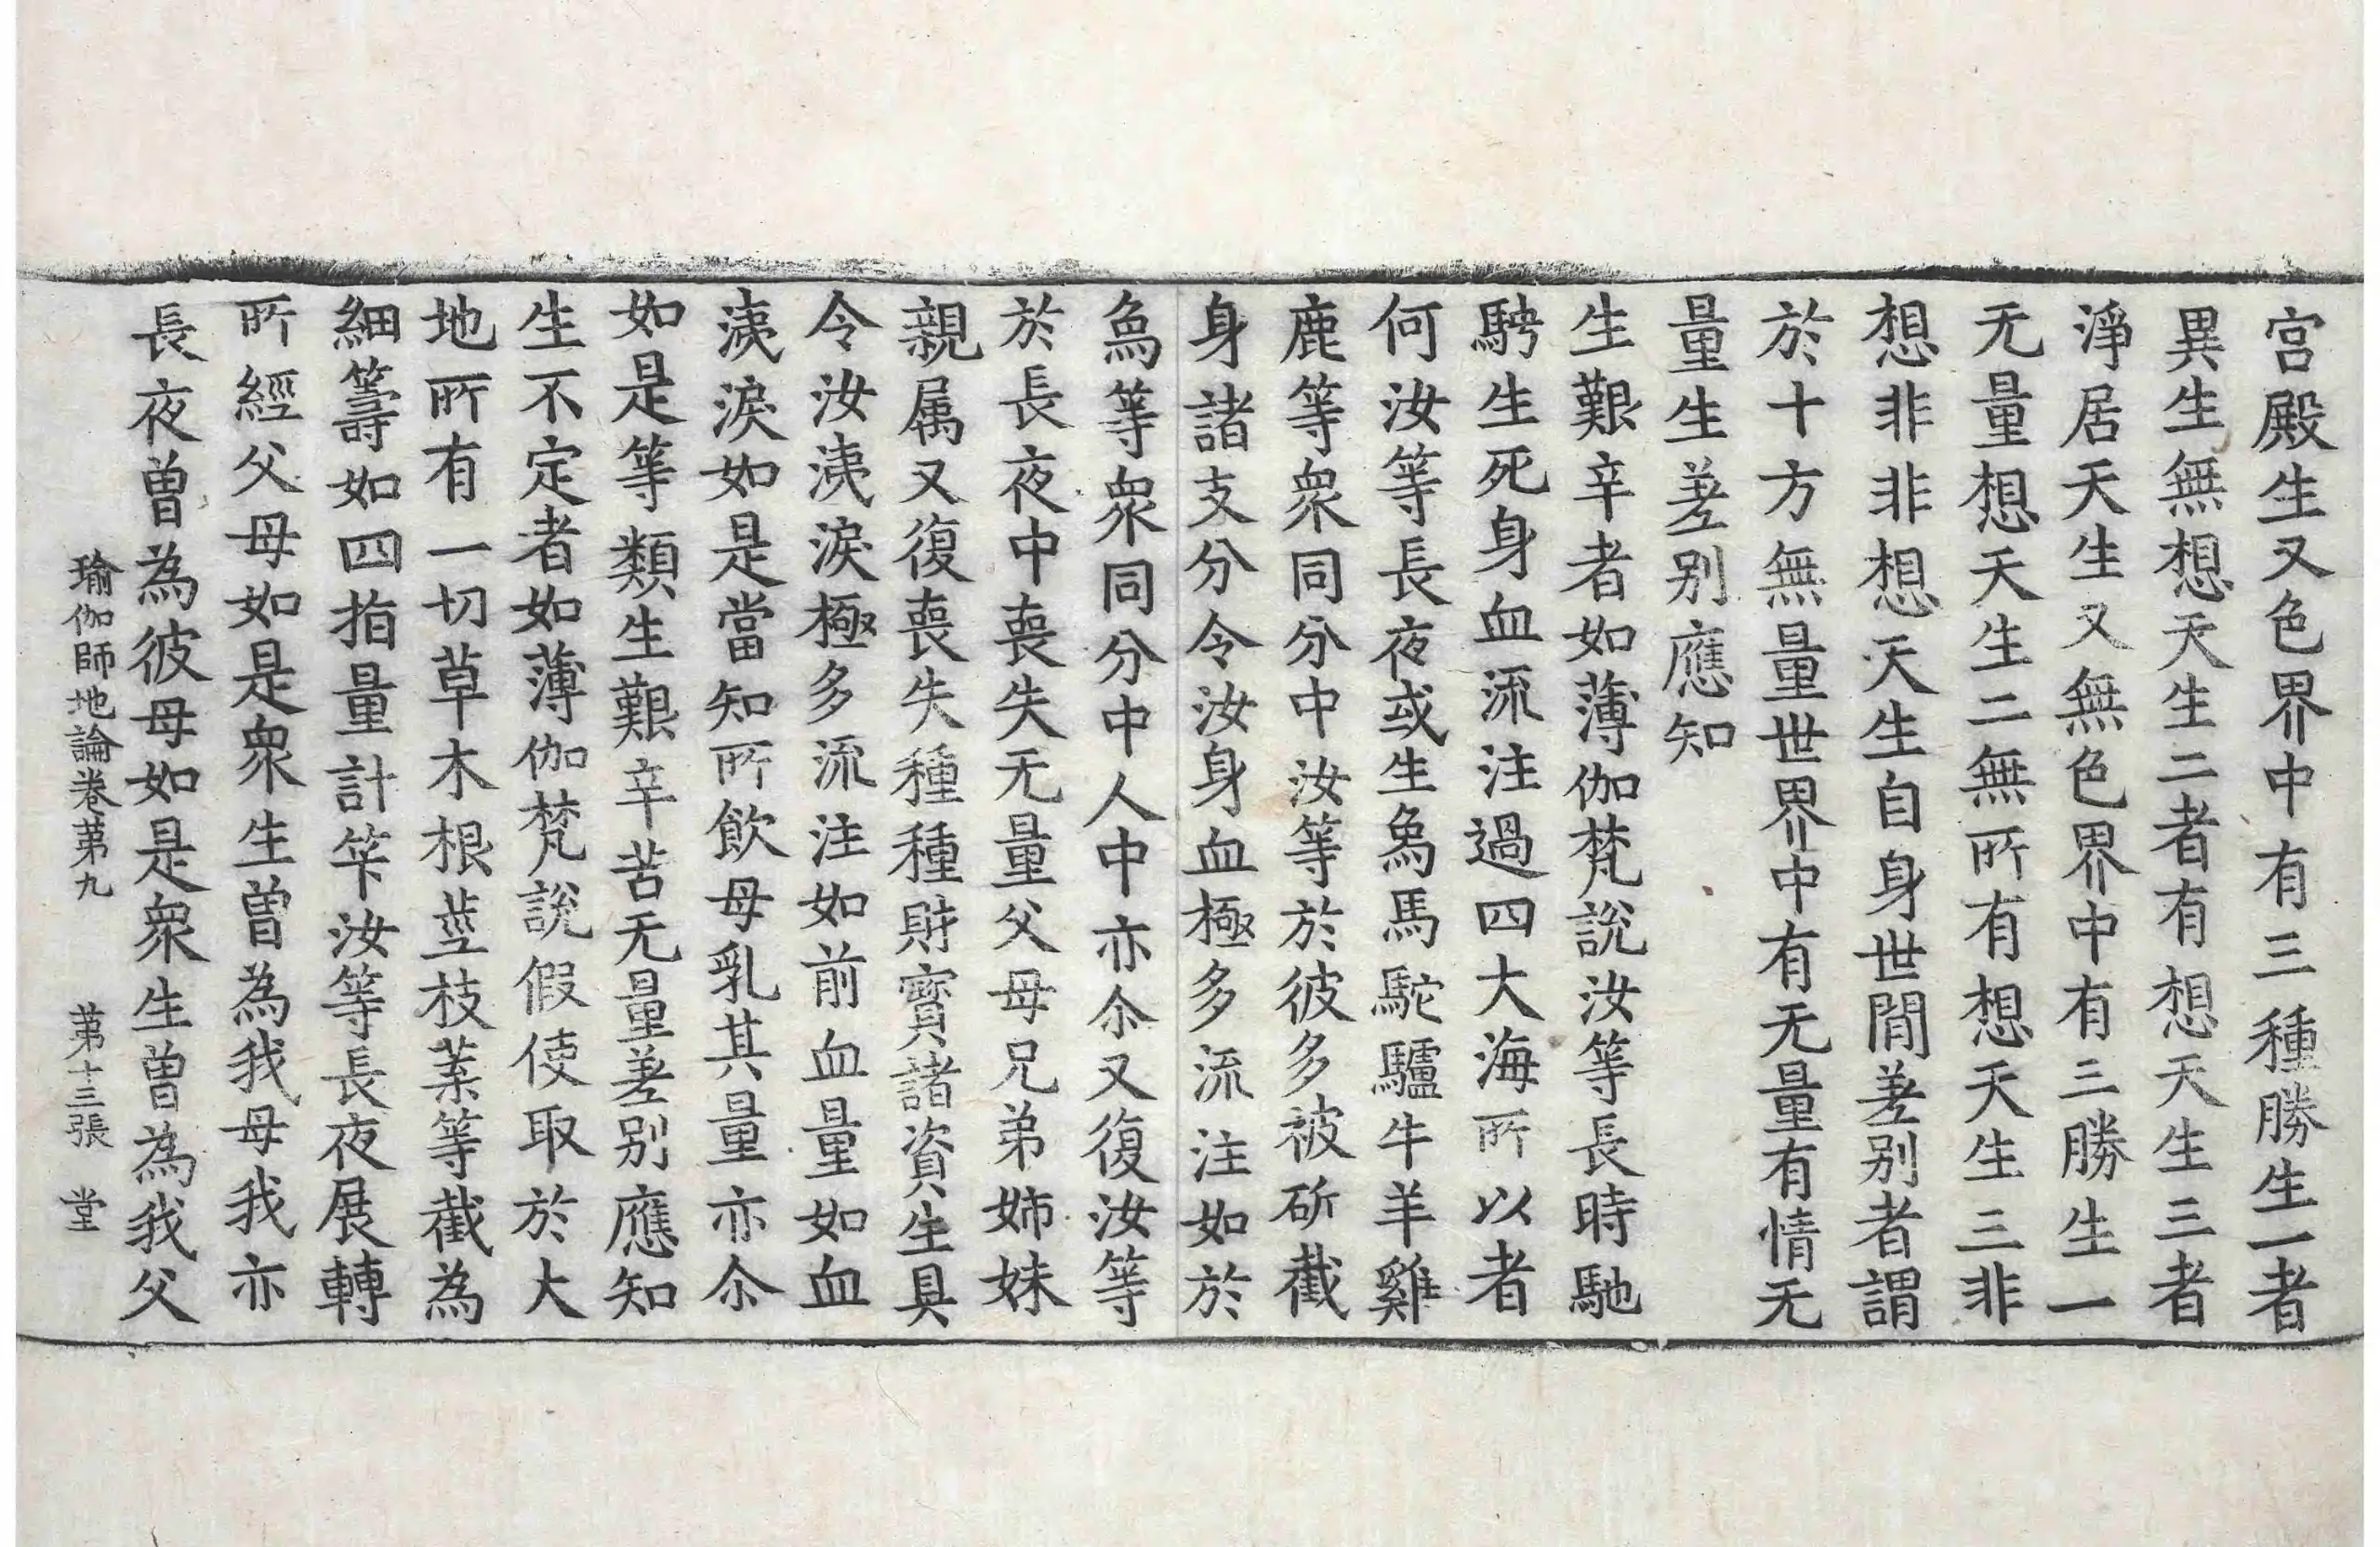 宮殿生又色界中有三種勝生一者
異生無想天生二者有想天生三者
淨居天生又無色界中有三勝生一
无量想天生二無所有想天生三非
想非非想天生自身世間差别者謂
於十方無量世界中有无量有情无
量生差别應知
生艱辛者如薄伽梵說汝等長時馳
騁生死身血流注過四大海所以者
何汝等長夜或生象馬駝驢牛羊雞
鹿等衆同分中汝等於彼多被斫截
身諸支分令汝身血極多流注如於
象等衆同分中人中亦尒又復汝等
於長夜中喪失无量父母兄弟姉妹
親属又復喪失種種財寳諸資生具
令汝洟淚極多流注如前血量如血
洟淚如是當知所飲母乳其量亦尒
如是等類生艱辛苦无量差别應知
生不定者如薄伽梵說假使取於大
地所有一切草木根莖枝葉等截為
細籌如四指量計筭汝等長夜展轉
所經父母如是衆生曾為我母我亦
長夜曾為彼母如是衆生曾為我父
瑜伽師地論卷第九 第十三張 堂